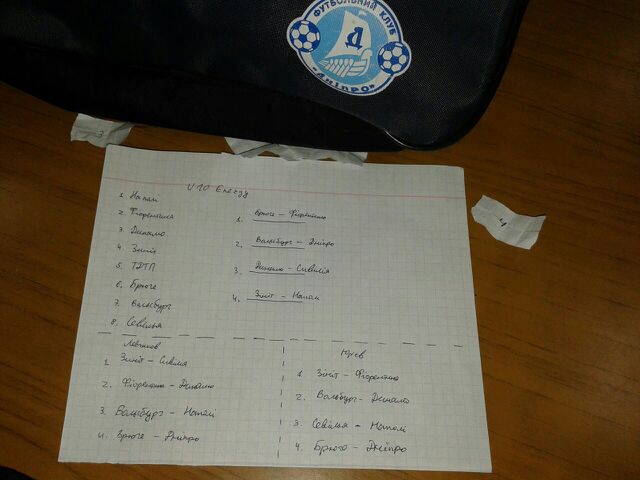 ФУТБОЛЬНИЙ КЛУБ
Д
"ДНІПРО"
3
4
U 10 Energy
1. Наполі
2. Фіорентина
3. Динамо
4. Зиніт
5. ТДТП
6. Брюге
7. Вальбург
8. Севілья
1. Брюге - Фіорентина
2. Вальбург - Дніпро
3. Динамо - Сивілія
4. Зиніт - Наполі
Левчиков
1. Зиніт - Сивілія
2. Фіорентина - Динамо
3. Вальбург - Наполі
4. Брюге - Дніпро
Юрієв
1. Зиніт - Фіорентина
2. Вальбург - Динамо
3. Севілья - Наполі
4. Брюге - Дніпро